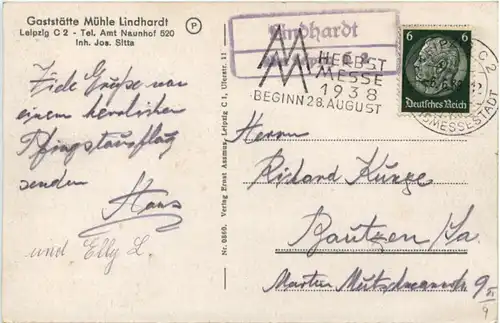 Gaststätte Mühle Lindhardt
Leipzig C 2 - Tel. Amt Naunhof 520
Inh. Jos. Sitta
P
Lindhardt
HERBST
MESSE
1938
BEGINN 28. AUGUST
6 6
Deutsches Reich
C 2
MESSESTADT
Viele Grüße von
einem herrlichen
Pfingstausflug
senden
Hans
und Elly L.
Nr. 0860. Verlag Ernst Assmus, Leipzig C 1, Uferstr. 11
Herrn
Richard Kunze
Bautzen/Sa.
Martin Mutschmannstr 9